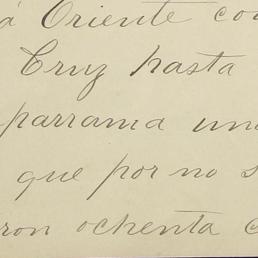 á Oriente co
Cruz hasta
parrama un
que por no s
ron ochenta c